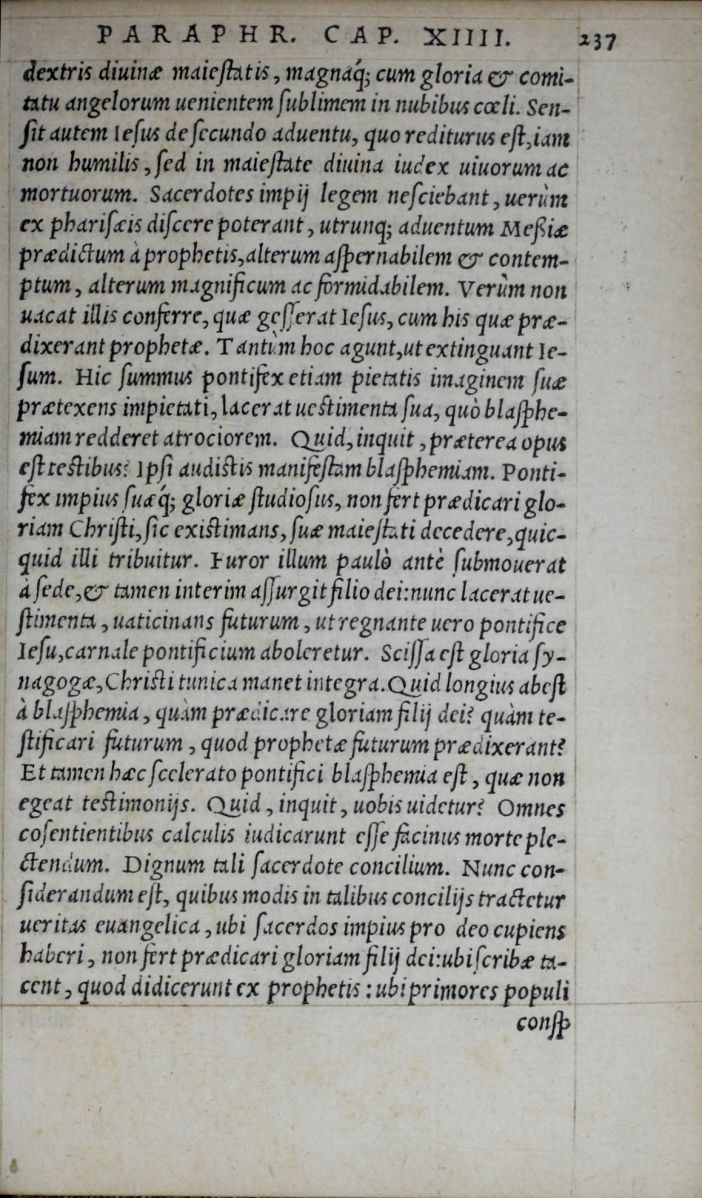 PARAPHR. CAP. XIIII. 237
dextris diuinæ maieſtatis, magnaq́; cum gloria & comi-
tatu angelorum uenientem ſublimem in nubibus cœli. Sen-
ſit autem Ieſus de ſecundo aduentu, quo rediturus eſt, iam
non humilis, ſed in maieſtate diuina iudex uiuorum ac
mortuorum. Sacerdotes impij legem neſciebant, uerùm
ex phariſæis diſcere poterant, utrunq; aduentum Meßiæ
prædictum à prophetis, alterum aſpernabilem & contem-
ptum, alterum magnificum ac formidabilem. Verùm non
uacat illis conferre, quæ geſſerat Ieſus, cum his quæ præ-
dixerant prophetæ. Tantùm hoc agunt, ut extinguant Ie-
ſum. Hic ſummus pontifex etiam pietatis imaginem ſuæ
prætexens impietati, lacerat ueſtimenta ſua, quò blaſphe-
miam redderet atrociorem. Quid, inquit, præterea opus
eſt teſtibus? Ipſi audiſtis manifeſtam blaſphemiam. Ponti-
fex impius ſuæq́; gloriæ ſtudioſus, non fert prædicari glo-
riam Chriſti, ſic exiſtimans, ſuæ maieſtati decedere, quic-
quid illi tribuitur. Furor illum paulò antè ſubmouerat
à ſede, & tamen interim aſſurgit filio dei: nunc lacerat ue-
ſtimenta, uaticinans futurum, ut regnante uero pontifice
Ieſu, carnale pontificium aboleretur. Sciſſa eſt gloria ſy-
nagogæ, Chriſti tunica manet integra. Quid longius abeſt
à blaſphemia, quàm prædicare gloriam filij dei? quàm te-
ſtificari futurum, quod prophetæ futurum prædixerant?
Et tamen hæc ſcelerato pontifici blaſphemia eſt, quæ non
egeat teſtimonijs. Quid, inquit, uobis uidetur? Omnes
coſentientibus calculis iudicarunt eſſe facinus morte ple-
ctendum. Dignum tali ſacerdote concilium. Nunc con-
ſiderandum eſt, quibus modis in talibus concilijs tractetur
ueritas euangelica, ubi ſacerdos impius pro deo cupiens
haberi, non fert prædicari gloriam filij dei: ubi ſcribæ ta-
cent, quod didicerunt ex prophetis: ubi primores populi
conſp